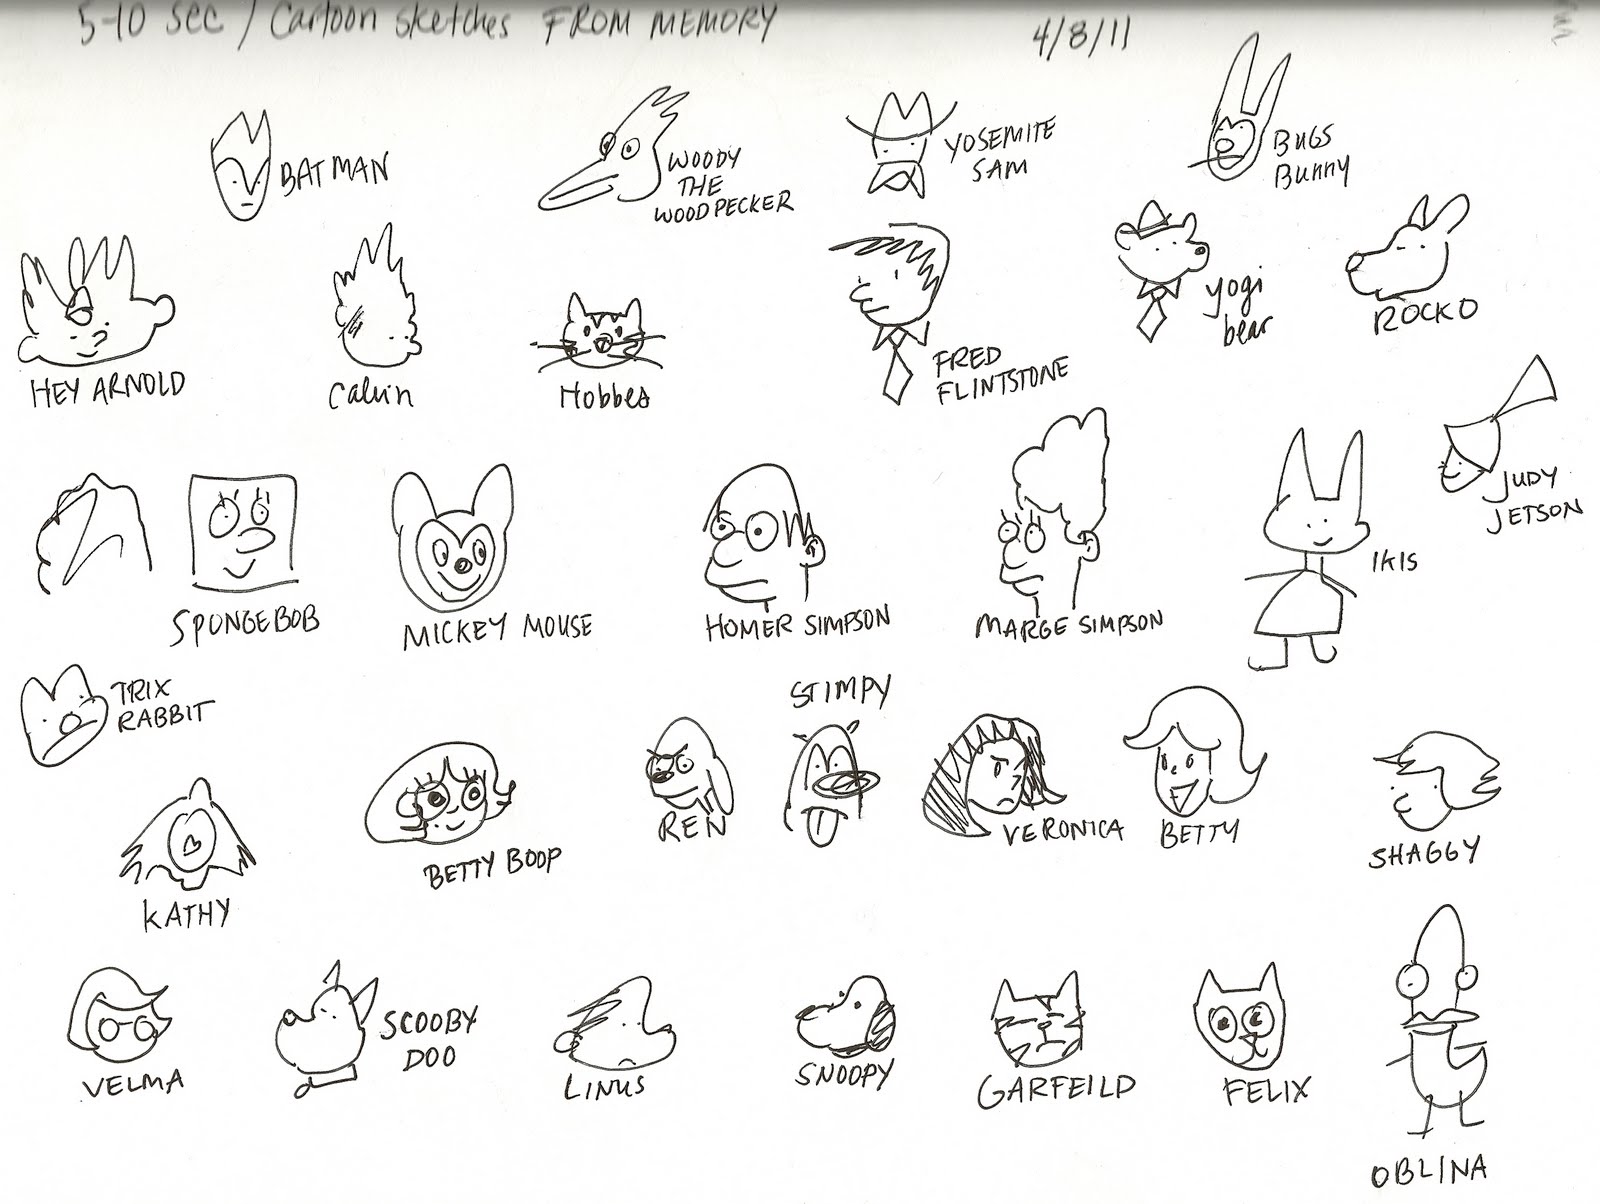 5-10 SEC / Cartoon sketches FROM MEMORY
4/8/11
BATMAN
WOODY
THE
WOODPECKER
YOSEMITE
SAM
BUGS
BUNNY
HEY ARNOLD
Calvin
Hobbes
FRED
FLINTSTONE
yogi
bear
ROCKO
SPONGEBOB
MICKEY MOUSE
HOMER SIMPSON
MARGE SIMPSON
IKIS
JUDY
JETSON
TRIX
RABBIT
KATHY
BETTY BOOP
REN
STIMPY
VERONICA
BETTY
SHAGGY
VELMA
SCOOBY
DOO
LINUS
SNOOPY
GARFEILD
FELIX
OBLINA